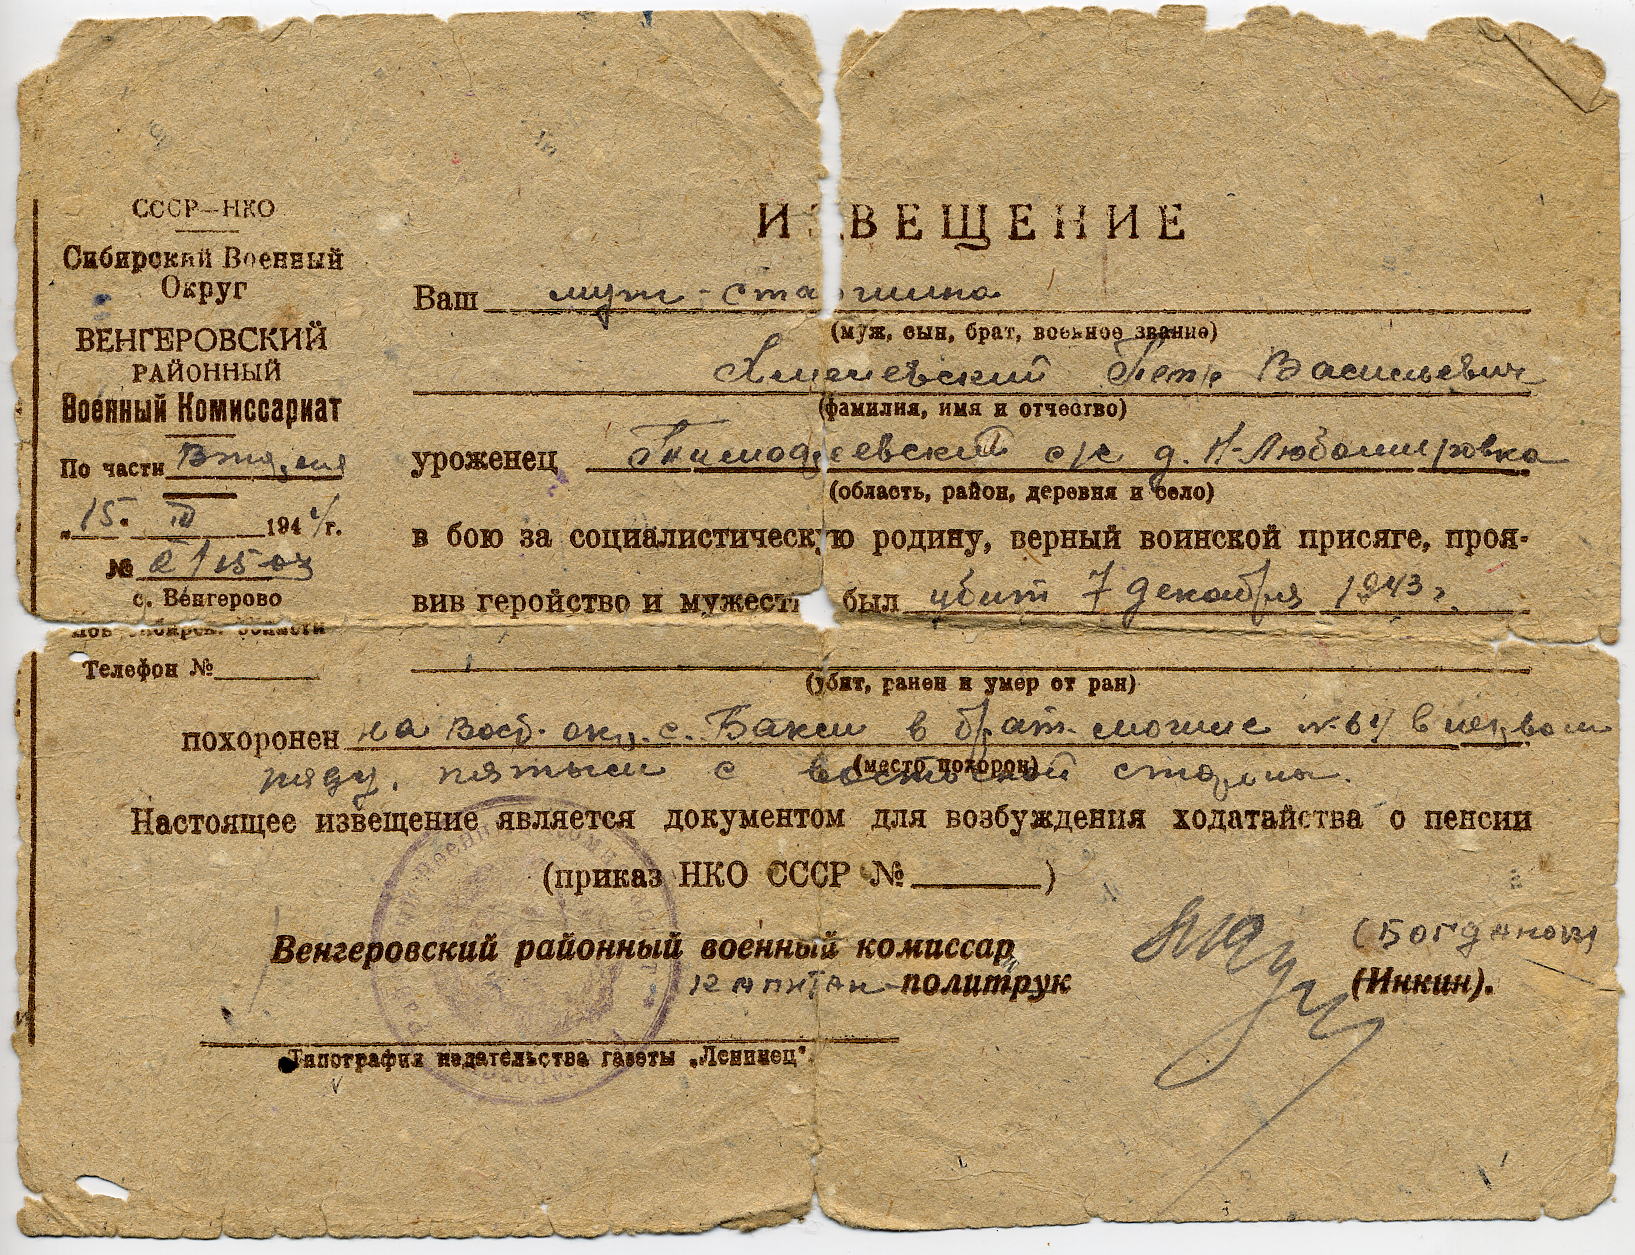 СССР—НКО
Сибирский Военный
Округ
ВЕНГЕРОВСКИЙ
РАЙОННЫЙ
Военный Комиссариат
По части
"15. III 1944 г.
№
с. Венгерово
Новосибирск. области
Телефон №
ИЗВЕЩЕНИЕ
Ваш муж - старшина
(муж, сын, брат, военное звание)
Петр Васильевич
(фамилия, имя и отчество)
уроженец Тимофеевский с/с д. Н-Любомировка
(область, район, деревня и село)
в бою за социалистическую родину, верный воинской присяге, проя-
вив геройство и мужество был убит 7 декабря 1943 г.
(убит, ранен и умер от ран)
похоронен на вост. окр. с. Бакси в брат. могиле в первом
(место похорон)
ряду, пятым с восточной стороны.
Настоящее извещение является документом для возбуждения ходатайства о пенсии
(приказ НКО СССР №)
Венгеровский районный военный комиссар (Богданов)
капитан политрук (Инкин).
Типография издательства газеты „Ленинец".